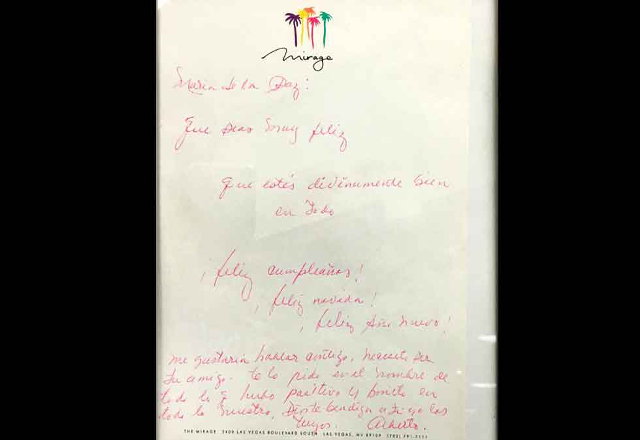 Mirage
Maria de la Paz:
Que seas muy feliz
que estés divinamente bien
en todo
¡feliz cumpleaños!
¡feliz navidad!
¡feliz Año nuevo!
me gustaria hablar contigo, necesito ser
tu amigo. te lo pido en el nombre de
todo lo q hubo positivo y bonito en
todo lo nuestro, Dios te bendiga a ti y a los
tuyos. Alberto.
THE MIRAGE 3400 LAS VEGAS BOULEVARD SOUTH LAS VEGAS, NV 89109 (702) 791-7111